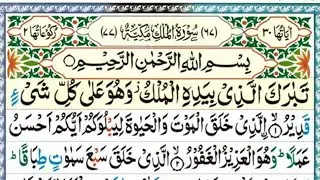 اٰیَاتُهَا ٣٠ (٦٧) سُوْرَةُ الْمُلْكِ مَكِّیَّةٌ (٧٧) رُكُوْعَاتُهَا ٢
بِسْمِ اللّٰهِ الرَّحْمٰنِ الرَّحِیْمِ
تَبٰرَكَ الَّذِیْ بِیَدِهِ الْمُلْكُ وَهُوَ عَلٰی كُلِّ شَیْءٍ
قَدِیْرُ ۙ﴿١﴾ الَّذِیْ خَلَقَ الْمَوْتَ وَالْحَیٰوةَ لِیَبْلُوَكُمْ اَیُّكُمْ اَحْسَنُ
عَمَلًا ؕ وَهُوَ الْعَزِیْزُ الْغَفُوْرُ ۙ﴿٢﴾ الَّذِیْ خَلَقَ سَبْعَ سَمٰوٰتٍ طِبَاقًا ؕ